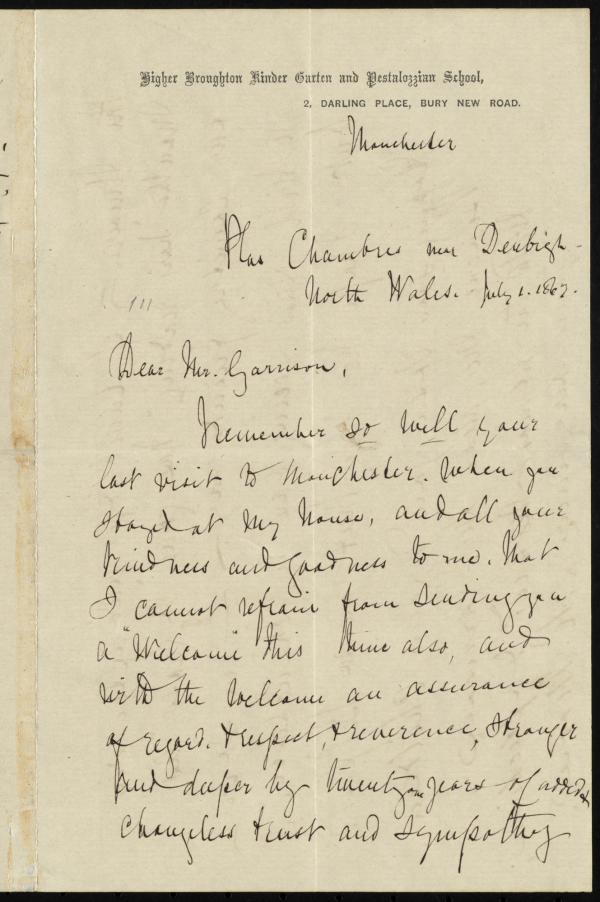 Higher Broughton Kinder Garten and Pestalozzian School,
2, DARLING PLACE, BURY NEW ROAD.
Manchester
Plas Chambres near Denbigh -
North Wales. July 1. 1867.
111
Dear Mr. Garrison,
I remember so well your
last visit to Manchester. When you
stayed at my House, and all your
kindness and goodness to me. That
I cannot refrain from sending you
a "Welcome" this time also, and
with the welcome an assurance
of regard. & respect, & reverence, stronger
and deeper by twenty one years of added &
changeless trust and sympathy